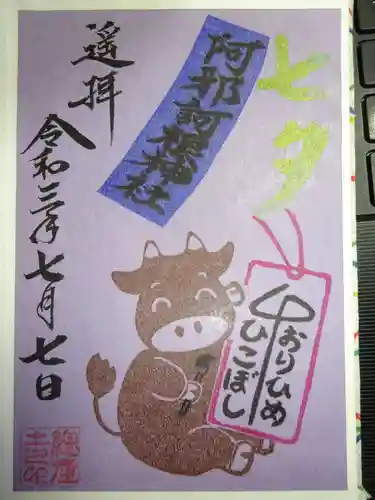 七夕
阿邪訶根神社
遥拝
令和三年七月七日
おりひめ
ひこぼし